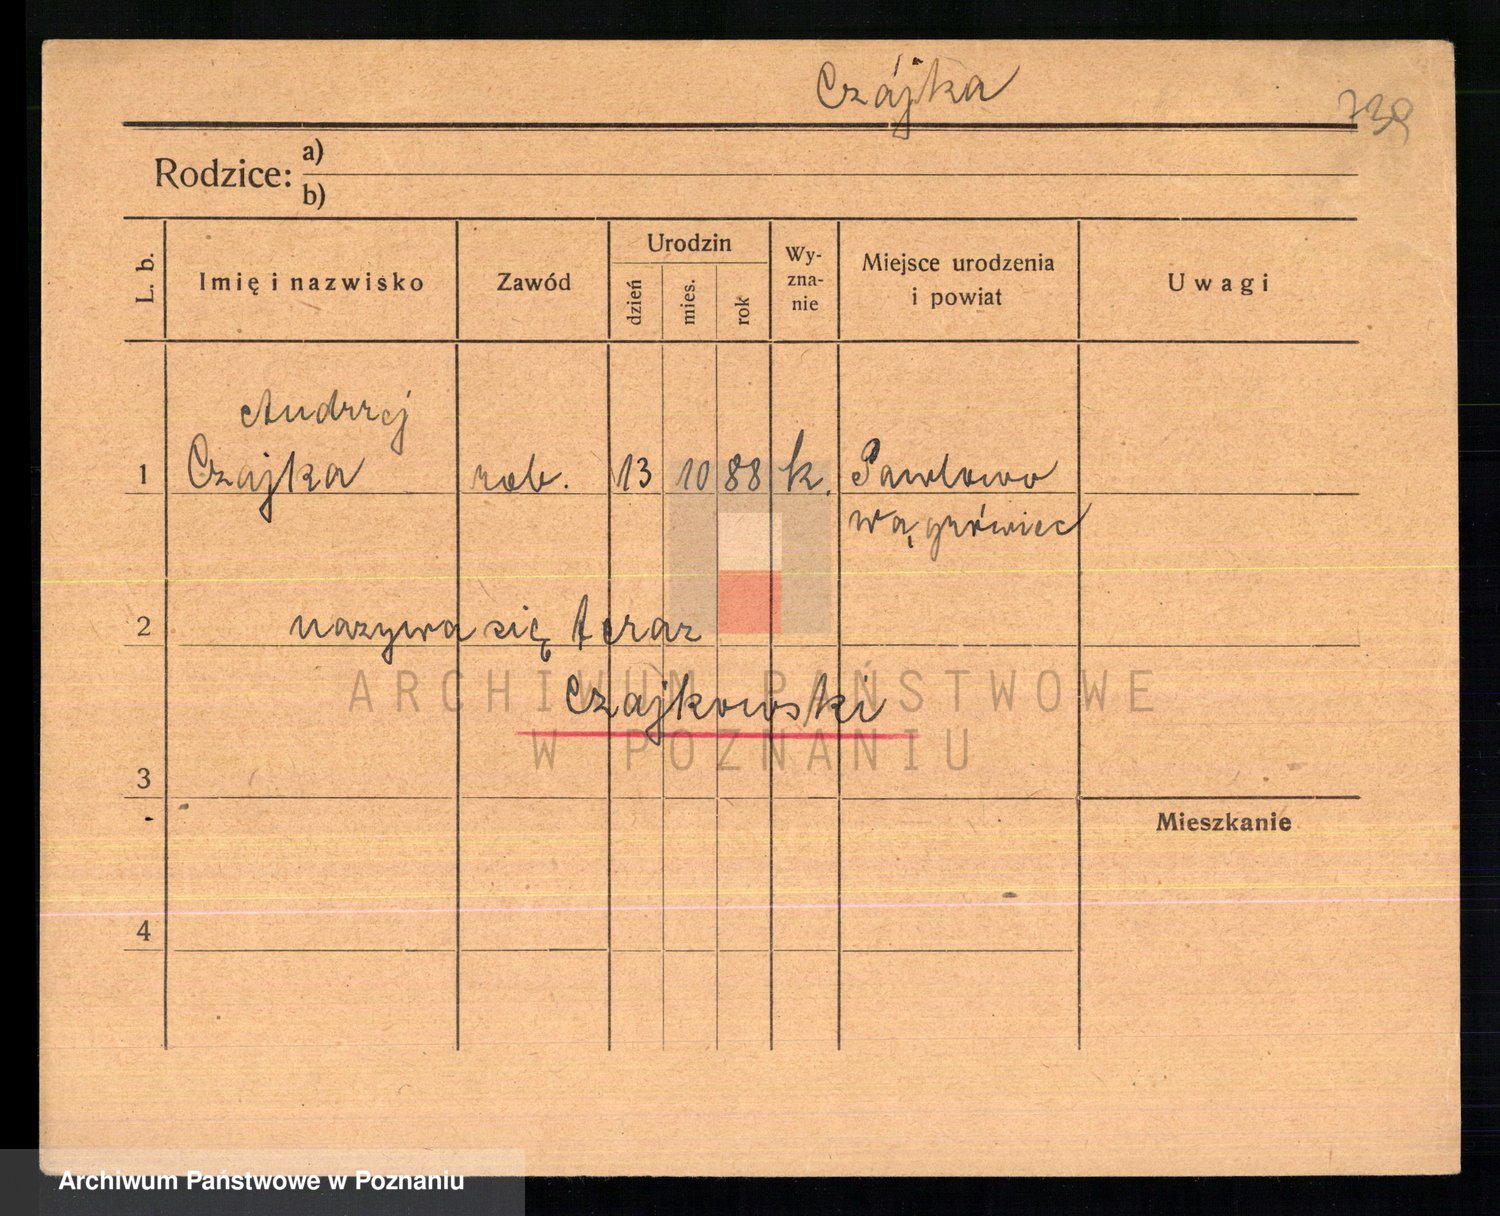 Czájka
738
Rodzice: a)
b)
L. b.
Imię i nazwisko
Zawód
Urodzin
dzień
mies.
rok
Wy-
zna-
nie
Miejsce urodzenia
i powiat
Uwagi
Andrzej
1 Czajka rob. 13 10 88 k. Pawłowo
Wągrówiec
2 nazywa się teraz
Czajkowski
ARCHIWUM PAŃSTWOWE
W POZNANIU
3
Mieszkanie
4
Archiwum Państwowe w Poznaniu